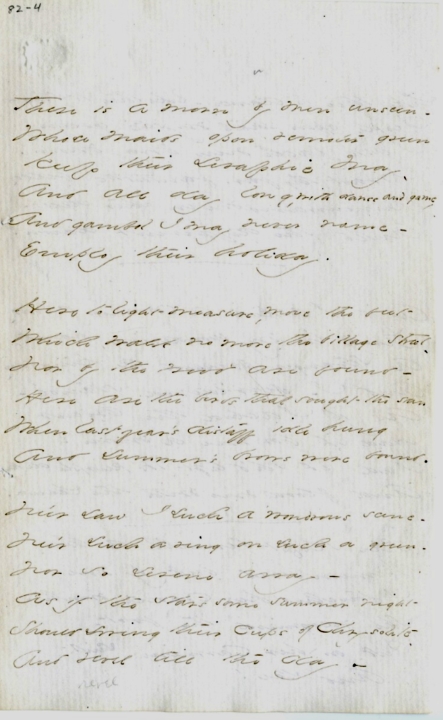 82-4
There is a morn by men unseen -
Whose maids upon remoter green
Keep their Seraphic May.
And all day long, with dance and game,
And gambol I may never name -
Employ their holiday.
Here to light measure, move the feet
Which walk no more the village street -
Nor by the wood are found -
Here are the birds that sought the sun
When last year's distaff idle hung
And summer's brows were bound.
Ne'er saw I such a wondrous scene -
Ne'er such a ring on such a green -
Nor so serene array -
As if the stars some summer night
Should swing their cups of Chrysolite -
And revel till the day -